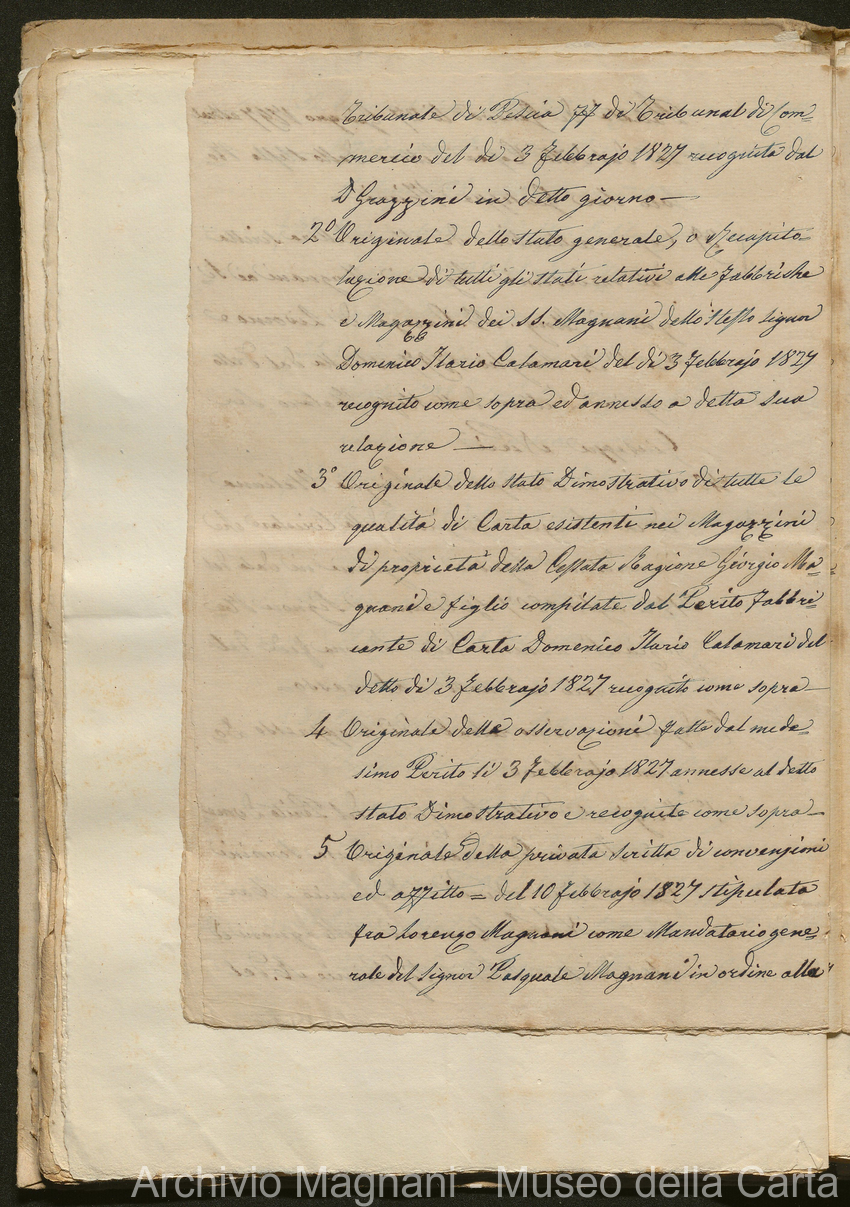 Tribunale di Pescia ff di Tribunal di Com=
mercio del dì 3 Febbrajo 1827 recognita dal
D Grazzini in detto giorno —
2º Originale dello stato generale, o Recapito=
lazione di tutti gli stati relativi alle Fabbriche
e Magazzini dei SS. Magnani dello stesso Signor
Domenico Ilario Calamari del dì 3 Febbrajo 1827
recognito come sopra ed annesso a detta sua
relazione —
3º Originale dello stato Dimostrativo di tutte le
qualità di Carta esistenti nei Magazzini
di proprietà della Cessata Ragione Giorgio Ma=
gnani e figlio compilate dal Perito Fabbri=
cante di Carta Domenico Ilario Calamari del
detto dì 3 Febbrajo 1827 recognito come sopra —
4 Originale delle osservazioni fatte dal mede=
simo Perito li 3 Febbrajo 1827 annesse al detto
stato Dimostrativo e recognite come sopra —
5 Originale della privata scritta di convenzioni
ed affitto = del 10 Febbrajo 1827 stipulata
fra Lorenzo Magnani come Mandatario gene=
rale del Signor Pasquale Magnani in ordine alla
Archivio Magnani - Museo della Carta